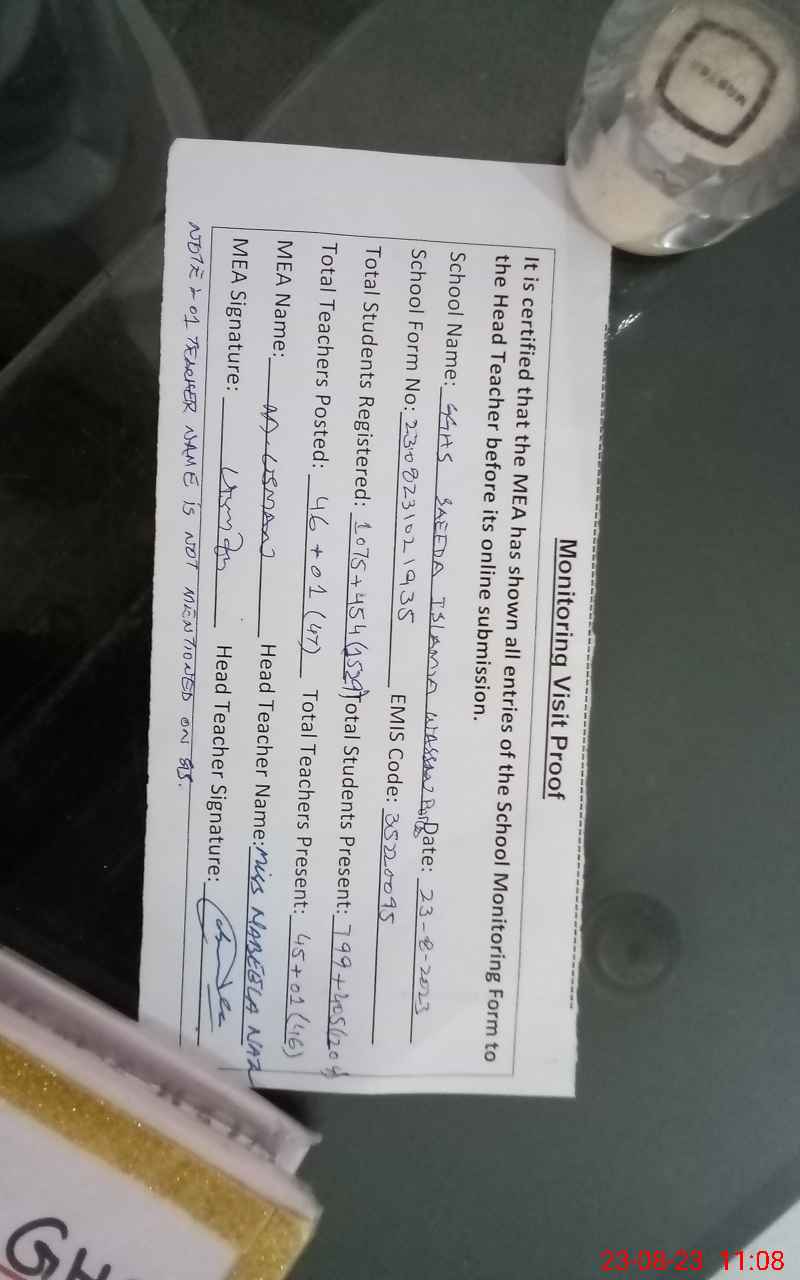 Monitoring Visit Proof
It is certified that the MEA has shown all entries of the School Monitoring Form to
the Head Teacher before its online submission.
School Name: GGHS SAEEDA ISLAMIA Date: 23-8-2023
School Form No: 2308231021935 EMIS Code: 35220095
Total Students Registered: 1075+454(1529) Total Students Present: 799+405(1204)
Total Teachers Posted: 46+01(47) Total Teachers Present: 45+01(46)
MEA Name: M. USMAN Head Teacher Name: Miss NABEELA NAZ
MEA Signature: Usman Head Teacher Signature:
NOTE: 01 TEACHER NAME IS NOT MENTIONED ON SIS.
23-08-23 11:08